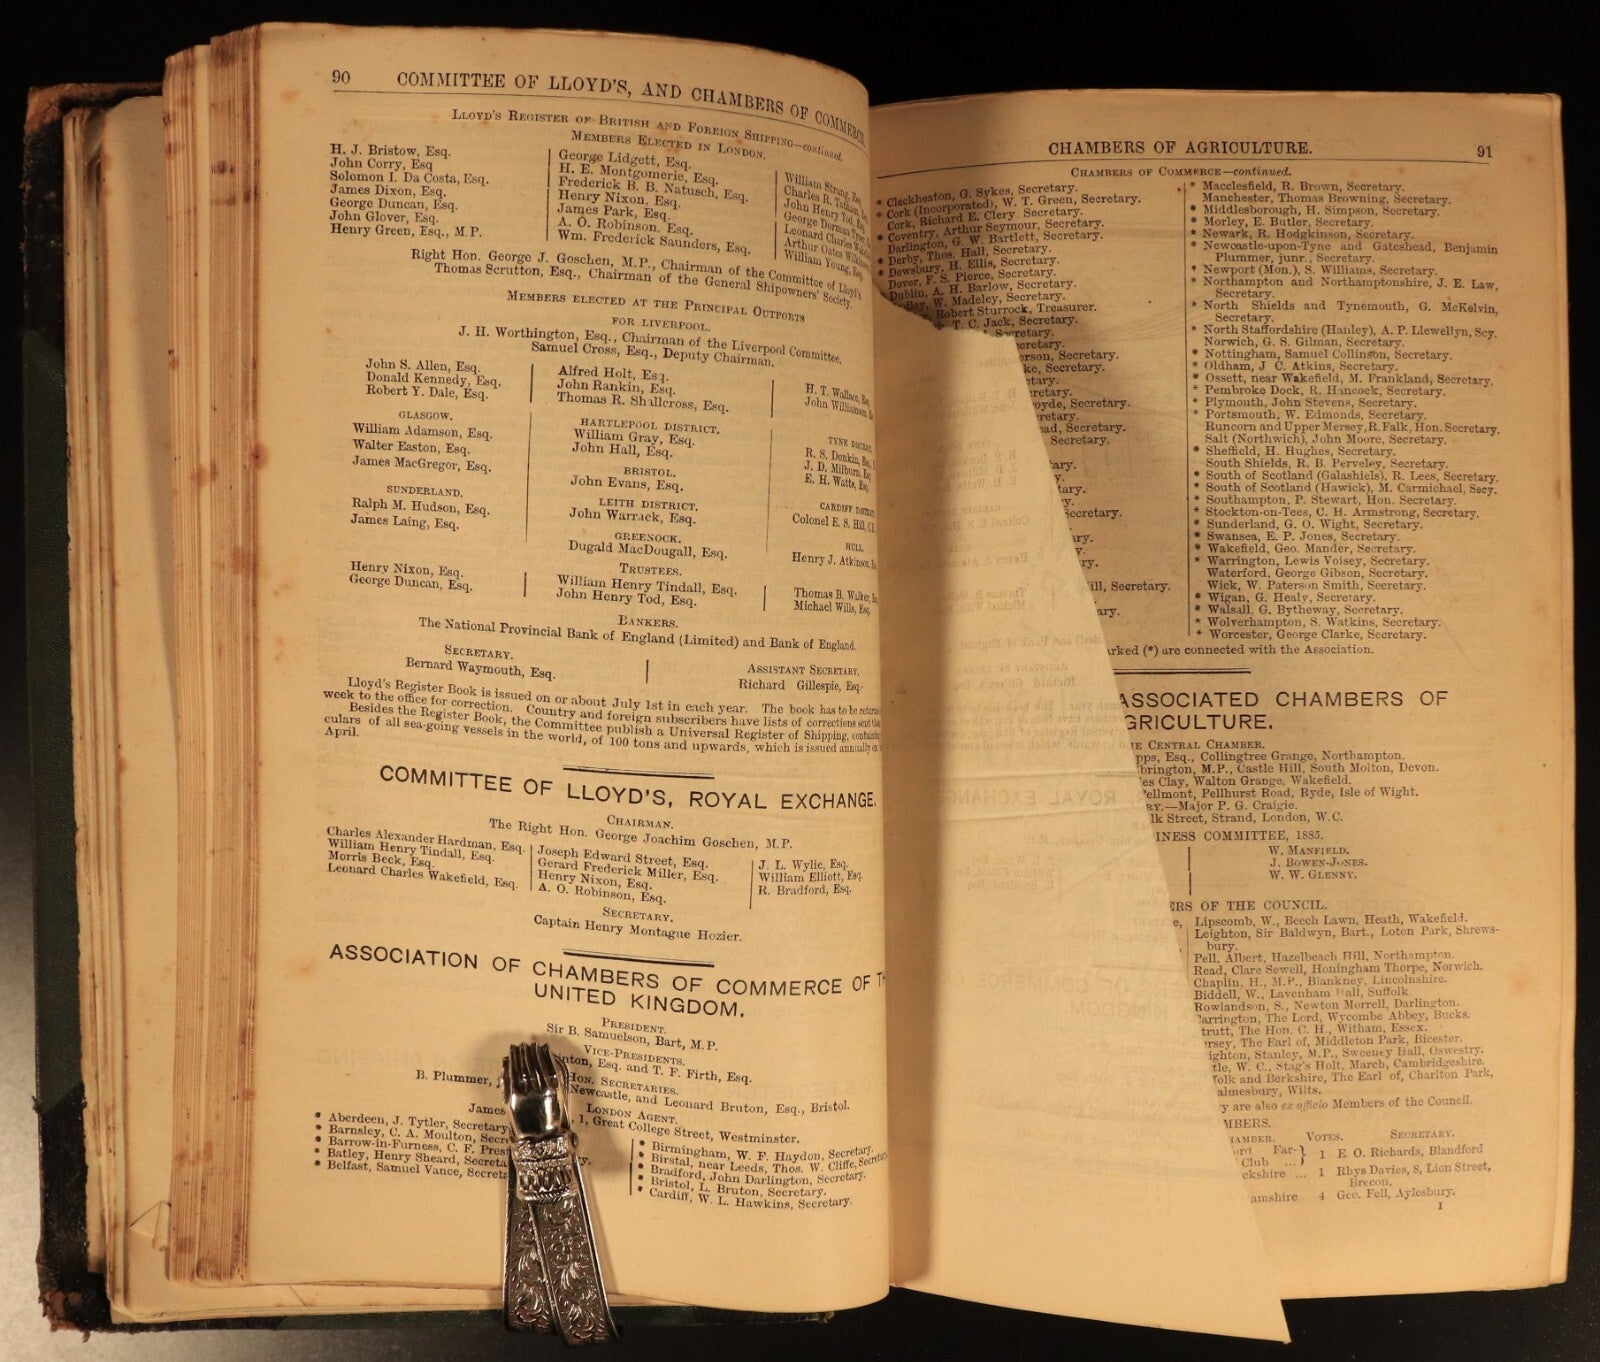 90 COMMITTEE OF LLOYD'S, AND CHAMBERS OF COMMERCE.
LLOYD'S REGISTER OF BRITISH AND FOREIGN SHIPPING—continued.
MEMBERS ELECTED IN LONDON.
H. J. Bristow, Esq.
John Corry, Esq
Solomon I. Da Costa, Esq.
James Dixon, Esq.
George Duncan, Esq.
John Glover, Esq.
Henry Green, Esq., M.P.
George Lidgett, Esq.
H. E. Montgomerie, Esq.
Frederick B. B. Natusch, Esq.
Henry Nixon, Esq.
James Park, Esq.
A. O. Robinson, Esq.
Wm. Frederick Saunders, Esq.
William Strang, Esq.
Charles R.
John Henry Tod, Esq.
George Dorman
Leonard Charles
Arthur Oates
William Young, Esq.
Right Hon. George J. Goschen, M.P., Chairman of the Committee of Lloyd's.
Thomas Scrutton, Esq., Chairman of the General Shipowners' Society.
MEMBERS ELECTED AT THE PRINCIPAL OUTPORTS
FOR LIVERPOOL.
J. H. Worthington, Esq., Chairman of the Liverpool Committee.
Samuel Cross, Esq., Deputy Chairman.
John S. Allen, Esq.
Donald Kennedy, Esq.
Robert Y. Dale, Esq.
Alfred Holt, Esq.
John Rankin, Esq.
Thomas R. Shallcross, Esq.
H. T. Wallace, Esq.
John Williamson,
GLASGOW.
William Adamson, Esq.
Walter Easton, Esq.
James MacGregor, Esq.
SUNDERLAND.
Ralph M. Hudson, Esq.
James Laing, Esq.
HARTLEPOOL DISTRICT.
William Gray, Esq.
John Hall, Esq.
BRISTOL.
John Evans, Esq.
LEITH DISTRICT.
John Warrack, Esq.
GREENOCK.
Dugald MacDougall, Esq.
TYNE DISTRICT.
R. S. Donkin, Esq.
J. D. Milburn, Esq.
E. H. Watts, Esq.
CARDIFF DISTRICT.
Colonel E. S. Hill, C.B.
HULL.
Henry J. Atkinson,
TRUSTEES.
Henry Nixon, Esq.
George Duncan, Esq.
William Henry Tindall, Esq.
John Henry Tod, Esq.
Thomas B. Walker,
Michael Wills, Esq.
BANKERS.
The National Provincial Bank of England (Limited) and Bank of England.
SECRETARY.
Bernard Waymouth, Esq.
ASSISTANT SECRETARY.
Richard Gillespie, Esq.
Lloyd's Register Book is issued on or about July 1st in each year. The book has to be
week to the office for correction. Country and foreign subscribers have lists of corrections sent
Besides the Register Book, the Committee publish a Universal Register of Shipping,
culars of all sea-going vessels in the world, of 100 tons and upwards, which is issued annually
April.
COMMITTEE OF LLOYD'S, ROYAL EXCHANGE.
CHAIRMAN.
The Right Hon. George Joachim Goschen, M.P.
Charles Alexander Hardman, Esq.
William Henry Tindall, Esq.
Morris Beck, Esq.
Leonard Charles Wakefield, Esq.
Joseph Edward Street, Esq.
Gerard Frederick Miller, Esq.
Henry Nixon, Esq.
A. O. Robinson, Esq.
J. L. Wylie, Esq.
William Elliott, Esq.
R. Bradford, Esq.
SECRETARY.
Captain Henry Montague Hozier.
ASSOCIATION OF CHAMBERS OF COMMERCE OF TH
UNITED KINGDOM.
PRESIDENT.
Sir B. Samuelson, Bart, M.P.
VICE-PRESIDENTS.
Esq. and T. F. Firth, Esq.
HON. SECRETARIES.
B. Plummer, Newcastle, and Leonard Bruton, Esq., Bristol.
LONDON AGENT.
James 1, Great College Street, Westminster.
* Aberdeen, J. Tytler, Secretary
* Barnsley, C. A. Moulton,
* Barrow-in-Furness, C. F.
* Batley, Henry Sheard,
* Belfast, Samuel Vance,
* Birmingham, W. F. Haydon, Secretary.
* Birstal, near Leeds, Thos. W. Cliffe, Secretary.
* Bradford, John Darlington, Secretary.
* Bristol, L. Bruton, Secretary.
* Cardiff, W. L. Hawkins, Secretary.
CHAMBERS OF AGRICULTURE. 91
CHAMBERS OF COMMERCE—continued.
* Cleckheaton, G. Sykes, Secretary.
* Cork (Incorporated), W. T. Green, Secretary.
Cork, Richard E. Clery Secretary.
* Coventry, Arthur Seymour, Secretary.
Darlington, G. W. Bartlett, Secretary.
* Derby, Thos. Hall, Secretary.
* Dewsbury, H. Ellis, Secretary.
Dover, F. S. Pierce, Secretary.
* Dublin, A. H. Barlow, Secretary.
W. Madeley, Secretary.
Robert Sturrock, Treasurer.
T. C. Jack, Secretary.
* Macclesfield, R. Brown, Secretary.
Manchester, Thomas Browning, Secretary.
* Middlesborough, H. Simpson, Secretary.
* Morley, E. Butler, Secretary.
* Newark, R. Hodgkinson, Secretary.
* Newcastle-upon-Tyne and Gateshead, Benjamin
Plummer, junr., Secretary.
* Newport (Mon.), S. Williams, Secretary.
* Northampton and Northamptonshire, J. E. Law,
Secretary.
* North Shields and Tynemouth, G. McKelvin,
Secretary.
* North Staffordshire (Hanley), A. P. Llewellyn, Scy.
Norwich, G. S. Gilman, Secretary.
* Nottingham, Samuel Collinson, Secretary.
* Oldham, J C. Atkins, Secretary.
* Ossett, near Wakefield, M. Frankland, Secretary.
* Pembroke Dock, R. Hancock, Secretary.
* Plymouth, John Stevens, Secretary.
* Portsmouth, W. Edmonds, Secretary.
Runcorn and Upper Mersey, R. Falk, Hon. Secretary.
Salt (Northwich), John Moore, Secretary.
* Sheffield, H. Hughes, Secretary.
South Shields, R. B. Perveley, Secretary.
* South of Scotland (Galashiels), R. Lees, Secretary.
* South of Scotland (Hawick), M. Carmichael, Secy.
* Southampton, P. Stewart, Hon. Secretary.
* Stockton-on-Tees, C. H. Armstrong, Secretary.
* Sunderland, G. O. Wight, Secretary.
* Swansea, E. P. Jones, Secretary.
* Wakefield, Geo. Mander, Secretary.
* Warrington, Lewis Voisey, Secretary.
Waterford, George Gibson, Secretary.
Wick, W. Paterson Smith, Secretary.
* Wigan, G. Healy, Secretary.
* Walsall, G. Bytheway, Secretary.
* Wolverhampton, S. Watkins, Secretary.
* Worcester, George Clarke, Secretary.
(*) are connected with the Association.
ASSOCIATED CHAMBERS OF
GRICULTURE.
CENTRAL CHAMBER.
Esq., Collingtree Grange, Northampton.
M.P., Castle Hill, South Molton, Devon.
Clay, Walton Grange, Wakefield.
Pellhurst Road, Ryde, Isle of Wight.
—Major P. G. Craigie.
Street, Strand, London, W.C.
INESS COMMITTEE, 1885.
W. MANFIELD.
J. BOWEN-JONES.
W. W. GLENNY.
ERS OF THE COUNCIL.
Lipscomb, W., Beech Lawn, Heath, Wakefield.
Leighton, Sir Baldwyn, Bart., Loton Park, Shrews-
bury.
Pell, Albert, Hazelbeach Hill, Northampton.
Read, Clare Sewell, Honingham Thorpe, Norwich.
Chaplin, H., M.P., Blankney, Lincolnshire.
Biddell, W., Lavenham Hall, Suffolk.
Rowlandson, S., Newton Morrell, Darlington.
arrington, The Lord, Wycombe Abbey, Bucks.
trutt, The Hon. C. H., Witham, Essex.
ersey, The Earl of, Middleton Park, Bicester.
ighton, Stanley, M.P., Sweeney Hall, Oswestry.
tle, W. C., Stag's Holt, March, Cambridgeshire.
folk and Berkshire, The Earl of, Charlton Park,
almesbury, Wilts.
y are also ex officio Members of the Council.
MBERS.
VOTES. SECRETARY.
Far-
Club ... 1 E. O. Richards, Blandford
ckshire ... 1 Rhys Davies, 8, Lion Street,
Brecon.
amshire 4 Geo. Fell, Aylesbury.
I